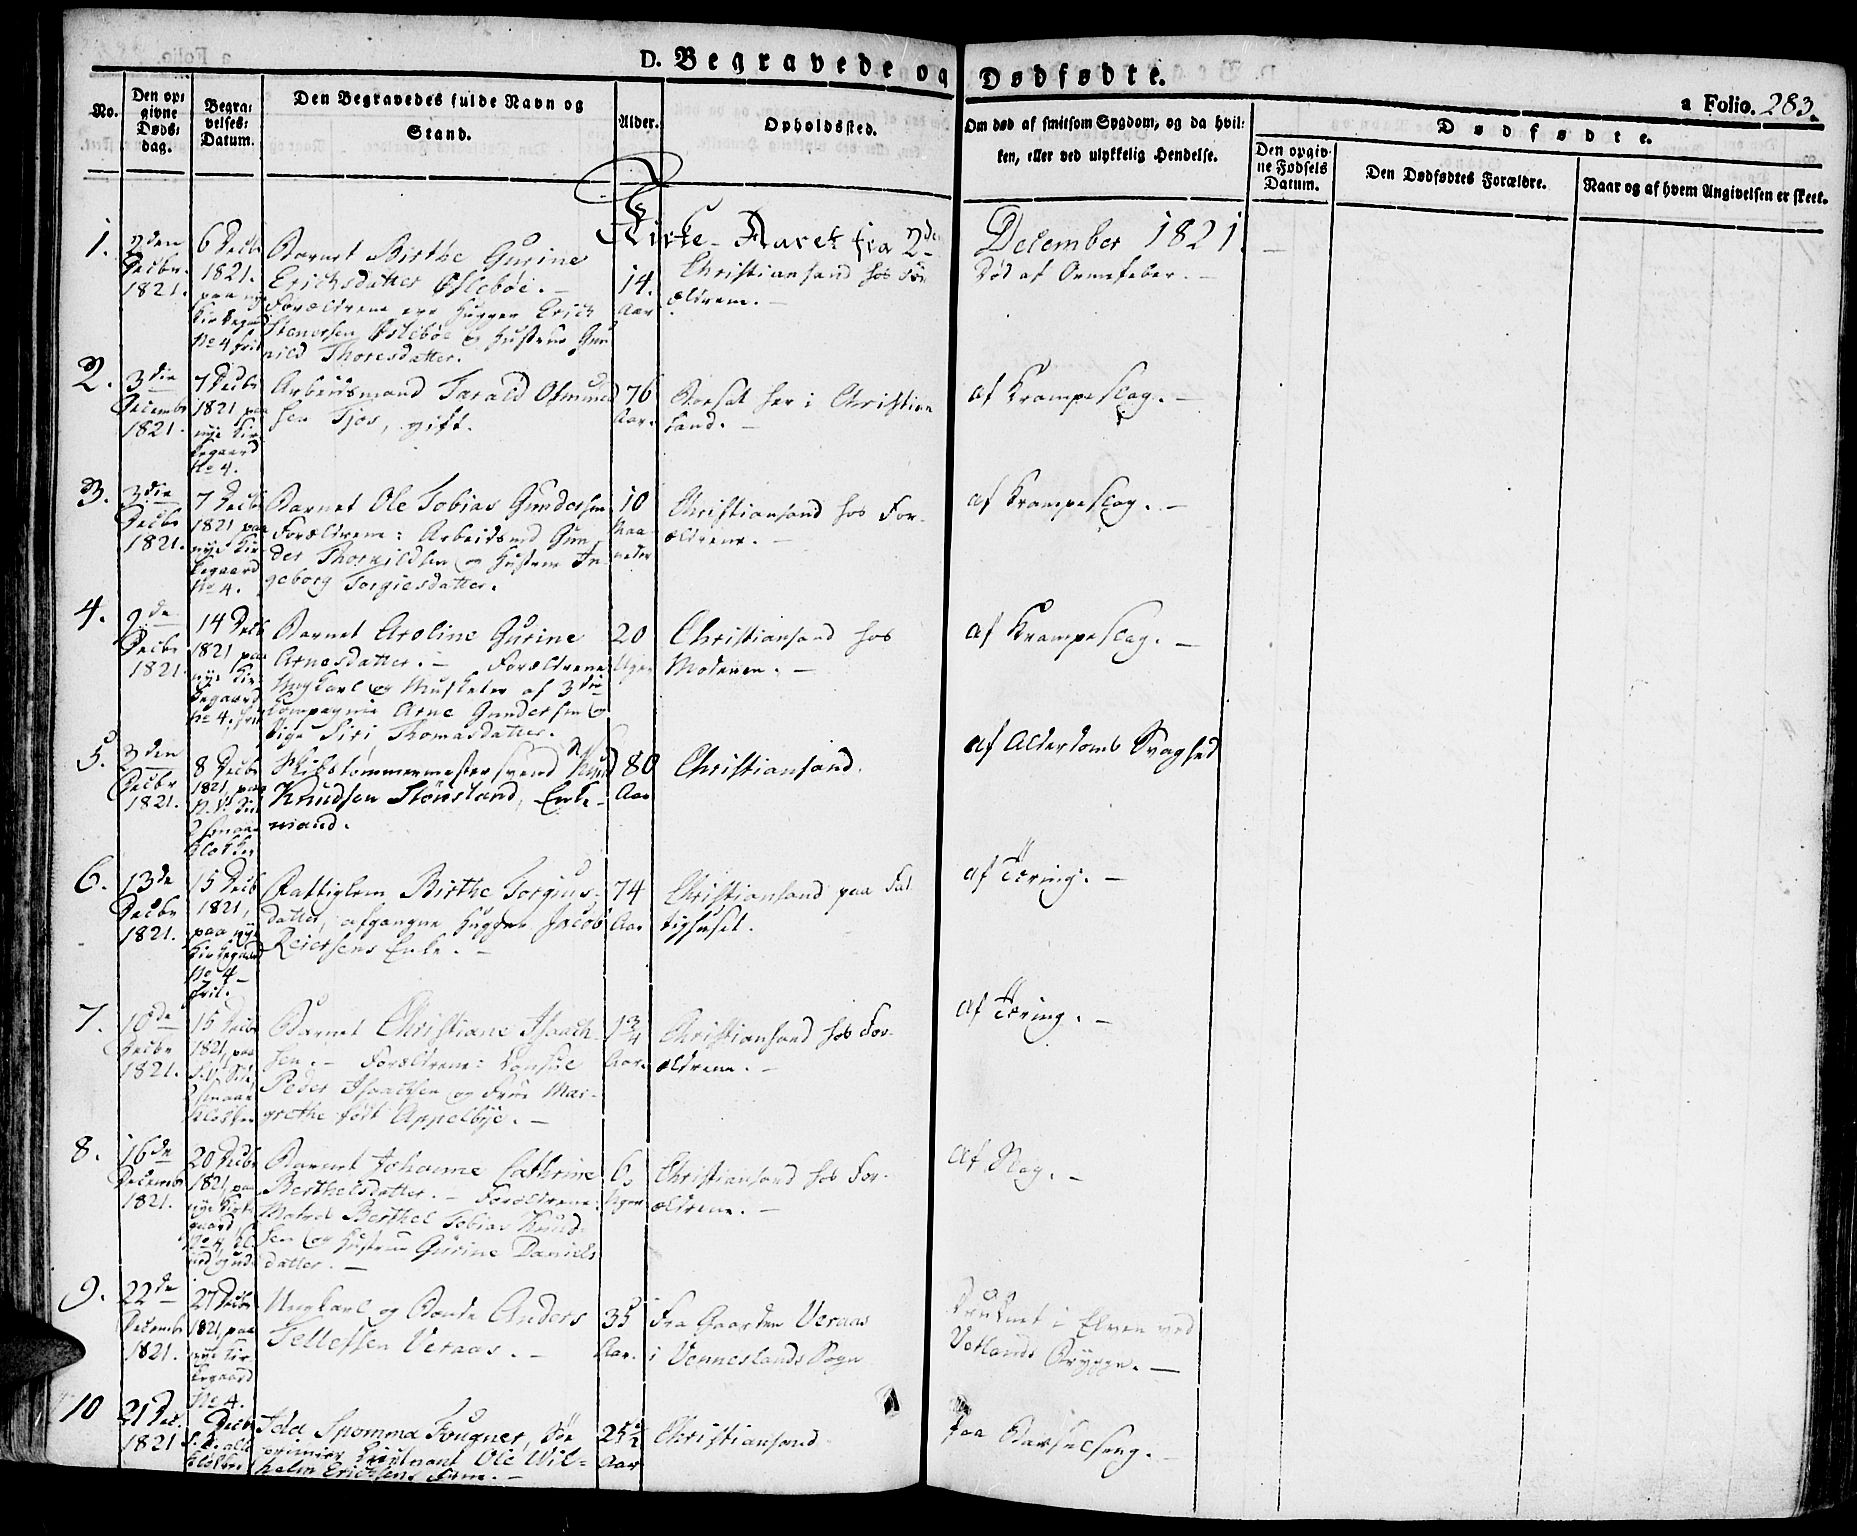 D. Begravede og Dødfødte.
a Folio. 283.
No.
Den op-
givne
Døds-
dag.
Begra-
velses-
Datum.
Den Begravedes fulde Navn og
Stand.
Alder.
Opholdssted.
Om død af smitsom Sygdom, og da hvil-
ken, eller ved ulykkelig Hendelse.
Dødfødte.
Den opgiv-
ne Fødsels
Datum.
Den Dødfødtes Forældre.
Naar og af hvem Angivelsen er skeet.
Kirke-Aaret fra 2den December 1821.
1.
2den
Decbr.
1821.
6 Decbr
1821.
paa nye
No 4 frit
Barnet Birthe Gurine
Erichsdatter Øslebøe. –
Forældrene ere Erich
Stenersen Øslebøe og Hustrue Gun
nild Thoresdatter.
14.
Aar
Christiansand hos For
ældrene. –
Død af
2.
3die
Decembr
1821.
7 Decbr
1821 paa
nye Kir-
kegaard
No 4.
Arbeidsmand Tarald Osmund
sen Tjos, gift.
76
Aar.
Bosat her i Christian
sand. –
af Krampeslag. –
3.
3die
Decbr
1821.
7 Decbr
1821 paa
nye Kir-
kegaard
No 4.
Barnet Ole Tobias Gundersen
Forældrene: Arbeidsmd Gun
der Thorkildsen og Hustrue In-
geborg Torgiesdatter.
10
Maa-
neder
Christiansand hos For-
ældrene. –
af Krampeslag. –
4.
9de
Decbr
1821.
14 Decbr
1821 paa
nye Kir-
kegaard
No 4. frit
Barnet Caroline Gurine
Arnesdatter. – Forældrene
Ungkarl og Musketer af 3die
Compagnie Arne Gundersen og
Pige Siri Thomasdatter.
20
Uger
Christiansand hos
Moderen. –
af Krampeslag. –
5.
3den
Decbr
1821.
8 Decbr
1821, paa
2 smaa
Klokker
Skibstømmermestersvend Knud
Knudsen Stønsland, Enke-
mand.
80
Aar
Christiansand.
af Alderdoms Svaghed
6.
13de
Decbr
1821.
15 Decb
1821,
paa nye
Kirkegaard
No 4 –
frit.
Fattiglem Birthe Torgius-
datter, afgangne Jacob
Reiersens Enke. –
74
Aar
Christiansand paa Fat
tighuset.
af Tæring. –
7.
10de
Decbr
1821.
15 Decbr
1821, paa
2 smaae
Klokker
Barnet Christiane Isaach
sen. – Forældrene: Consul
Peder Isaachsen og Frue Mar-
grethe født Appelbye. –
1 3/4
Aar.
Christiansand hos For-
ældrene. –
af Tæring. –
8.
16de
Decembr
1821.
20 Decbr
1821, paa
nye Kirke
gaard,
No 4,
Barnet Johanne Cathrine
Berthelsdatter. – Forældrene:
Matros Berthel Tobias Knud-
sen og Hustrue Gurine Daniels
datter. –
6
Uger
Christiansand hos For-
ældrene. –
af Slag. –
9.
22de
Decembr
1821.
27 Decbr
1821, paa
nye Kir-
kegaard
No 4.
Ungkarl og Bonde Anders
Tellefsen Veraas. –
35
Aar.
Fra Gaarden Veraas
i Venneslands Sogn
Druknet i Elven ved
Vetlands Brygge. –
10
21 Dec.
1821
Decbr
alle
Klokker
Ida Fougner,
premier Lieutnant Ole Wil-
helm Erichsens Frue. –
25 1/2
Aar
Christiansand
paa Barselseng. –